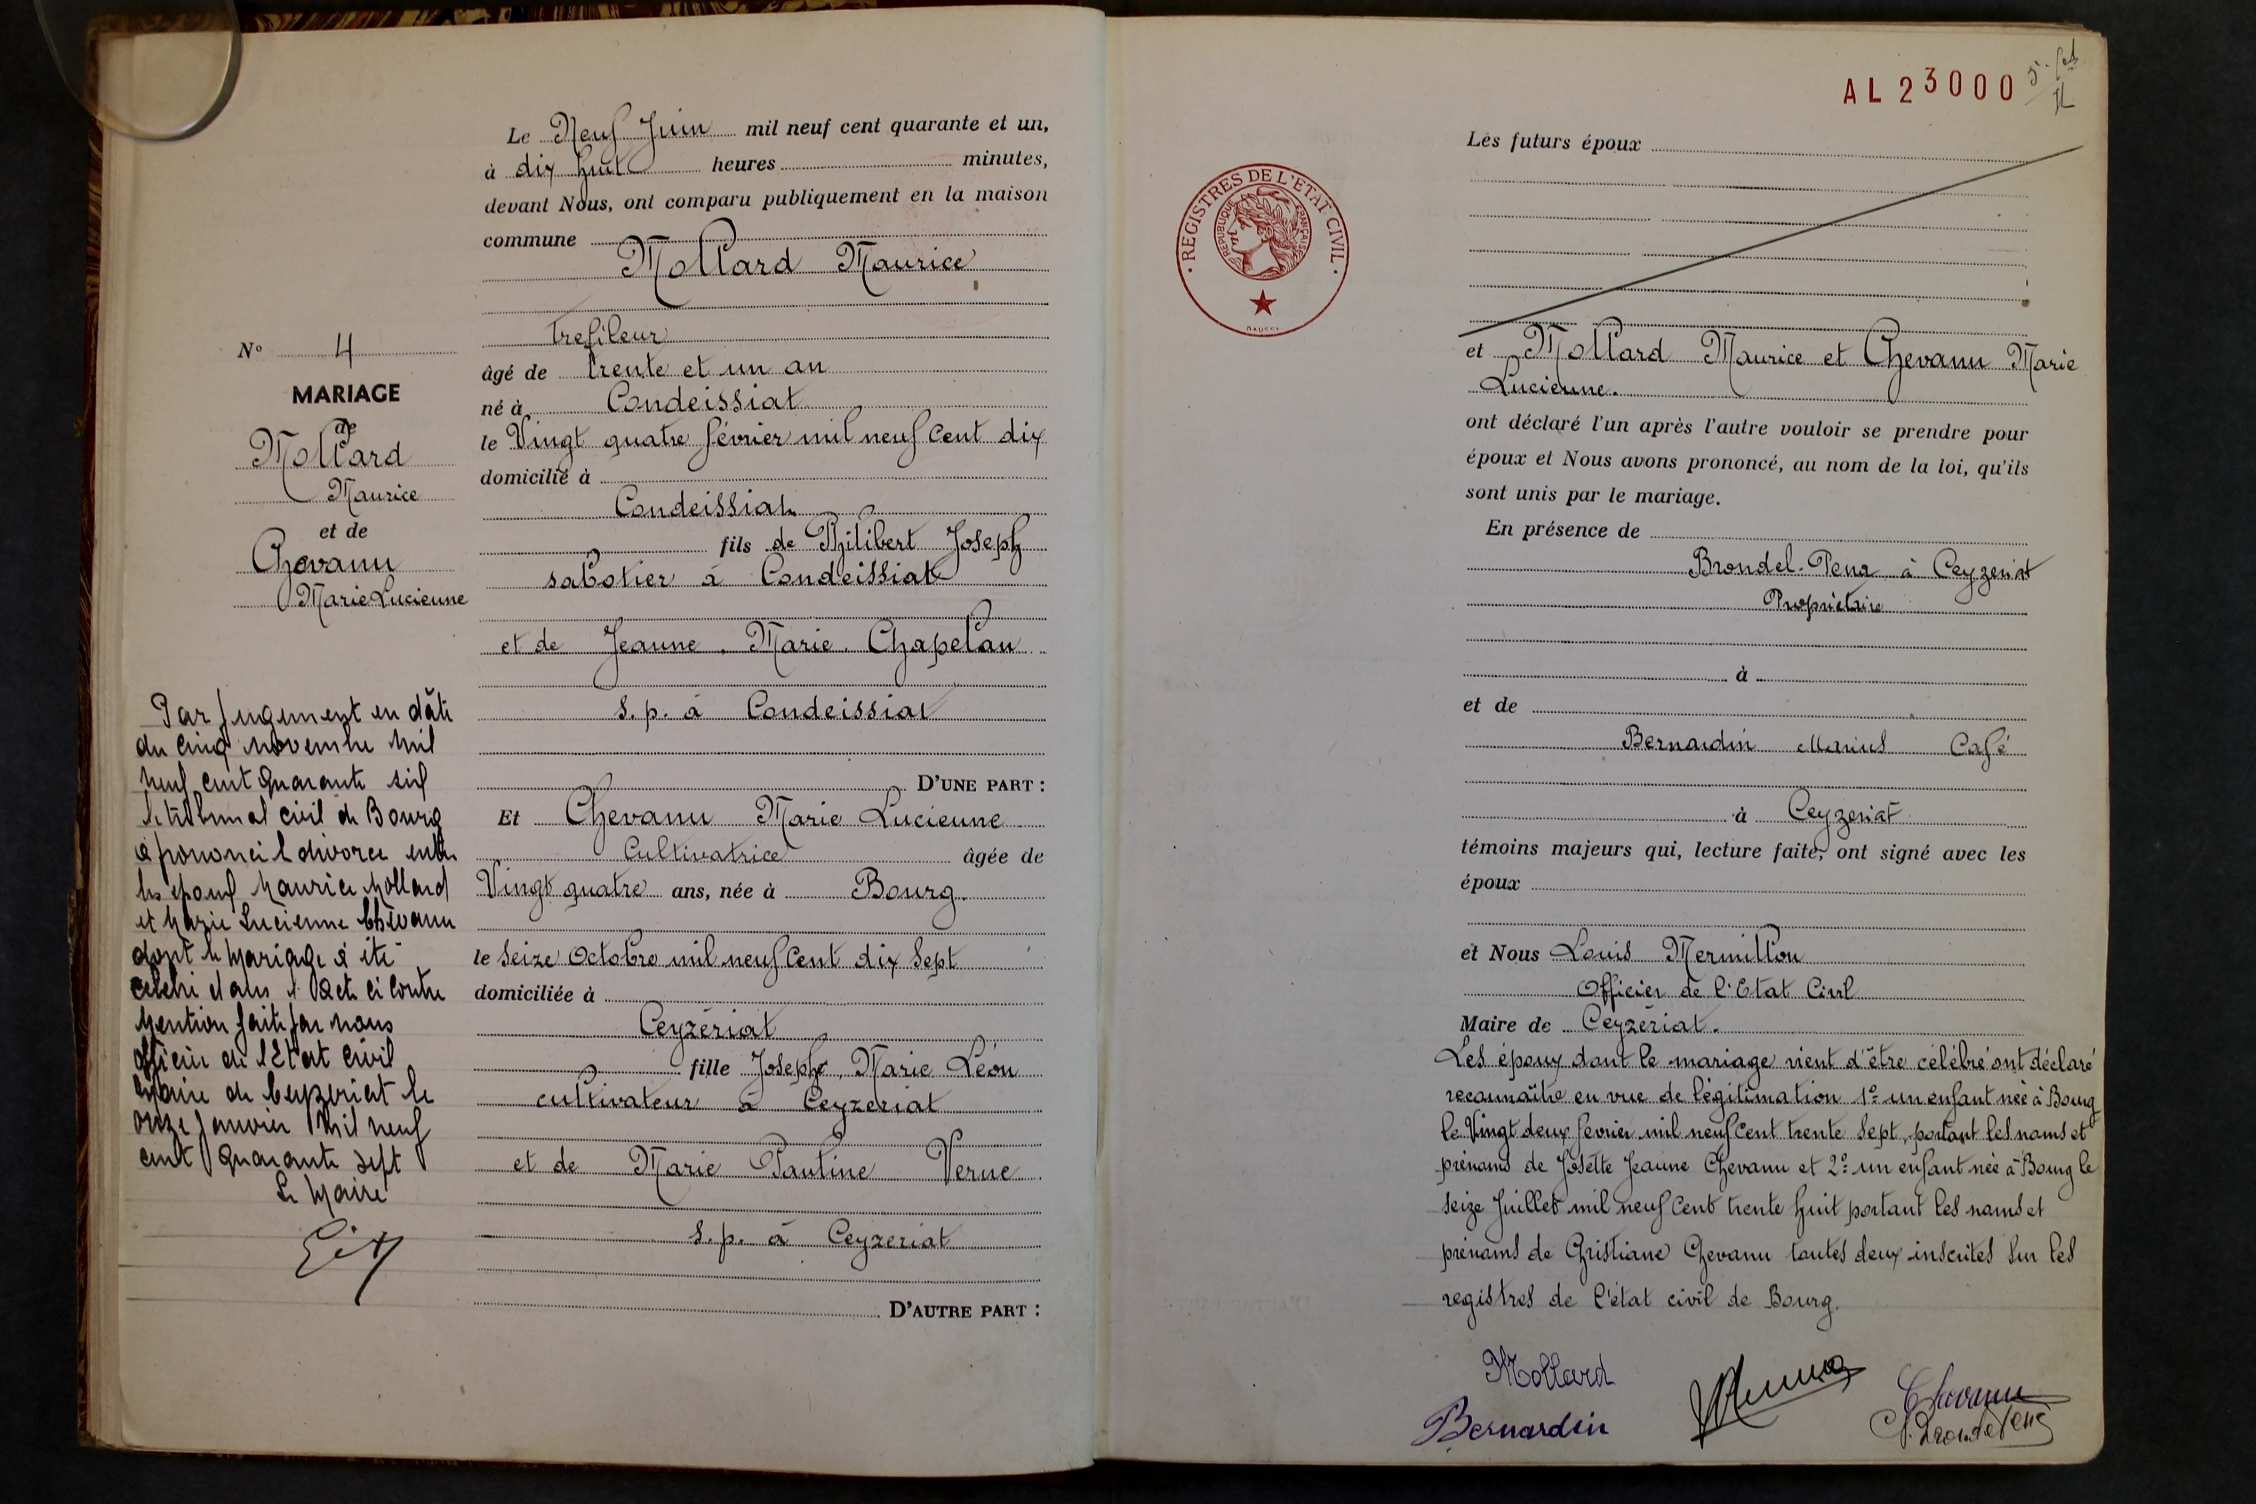 Le Neuf Juin mil neuf cent quarante et un,
à dix huit heures minutes,
devant Nous, ont comparu publiquement en la maison
commune
Mollard Maurice
trefileur
âgé de trente et un an
né à Condeissiat
le Vingt quatre février mil neuf cent dix
domicilié à
Condeissiat
fils de Philibert Joseph
sabotier à Condeissiat
et de Jeanne Marie Chapelan
s.p. à Condeissiat
D'UNE PART :
Et Chevanu Marie Lucienne
Cultivatrice âgée de
Vingt quatre ans, née à Bourg
le seize Octobre mil neuf cent dix sept
domiciliée à
Ceyzériat
fille Joseph, Marie Léon
cultivateur à Ceyzeriat
et de Marie Pauline Verne
s.p. à Ceyzeriat
D'AUTRE PART :
N° 4
MARIAGE
de
Mollard
Maurice
et de
Chevanu
Marie Lucienne
Par jugement en date
du cinq novembre mil
neuf cent quarante six
le tribunal civil de Bourg
a prononcé le divorce entre
les époux Maurice Mollard
et Marie Lucienne Chevanu
dont le mariage a été
célébré dans l'acte ci contre
Mention faite par nous
officier de l'Etat civil
Mairie de Ceyzeriat le
onze Janvier mil neuf
cent quarante sept
Le Maire
AL 23000
Les futurs époux
REGISTRES DE L'ETAT CIVIL
REPUBLIQUE FRANÇAISE
et Mollard Maurice et Chevanu Marie
Lucienne.
ont déclaré l'un après l'autre vouloir se prendre pour
époux et Nous avons prononcé, au nom de la loi, qu'ils
sont unis par le mariage.
En présence de
Brondel-Pena à Ceyzeriat
Propriétaire
à
et de
Bernardin Marius Café
à Ceyzeriat
témoins majeurs qui, lecture faite, ont signé avec les
époux
et Nous Louis Mermillon
Officier de l'Etat Civil
Maire de Ceyzériat.
Les époux dont le mariage vient d'être célébré ont déclaré
reconnaître en vue de légitimation 1° un enfant née à Bourg
le Vingt deux février mil neuf cent trente sept, portant les noms et
prénoms de Josette Jeanne Chevanu et 2° un enfant née à Bourg le
seize Juillet mil neuf cent trente huit portant les noms et
prénoms de Christiane Chevanu toutes deux inscrites sur les
registres de l'état civil de Bourg.
Mollard
Chevanu
Bernardin